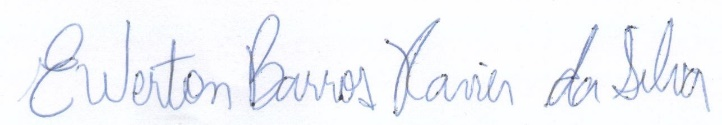 Ewerton Barros Xavier da Silva